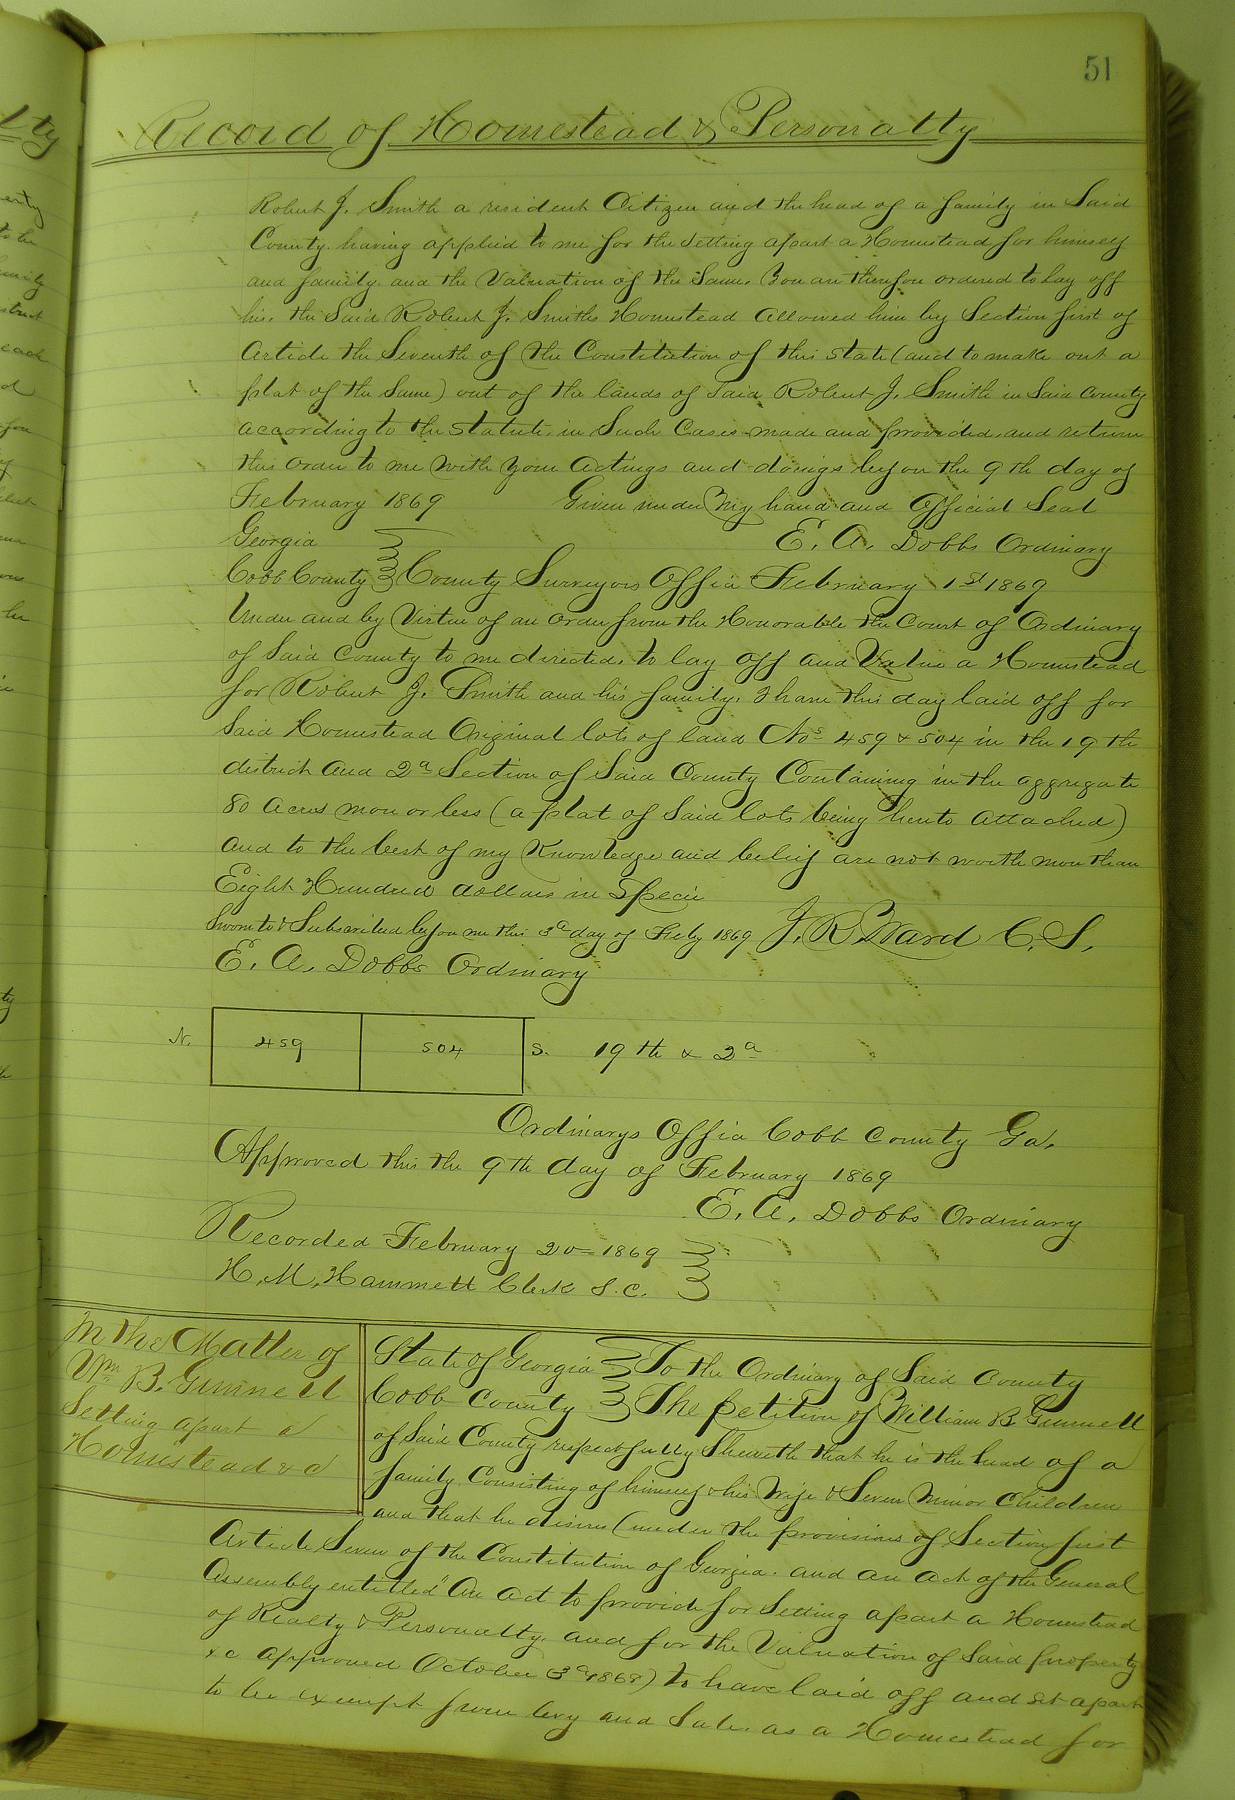 51
Record of Homestead & Personalty
Robert J. Smith a resident Citizen and the head of a family in Said
County. having applied to me for the Setting apart a Homestead for himself
and family. and the Valuation of the Same. You are therefore ordered to lay off
his. the Said Robert J. Smiths Homestead allowed him by Section first of
Article the Seventh of the Constitution of this State (and to make out a
plat of the Same) out of the lands of Said Robert J. Smith in Said County
according to the Statute, in Such Cases made and provided, and return
this order to me with your actings and doings before the 9th day of
February 1869 Given under My hand and Official Seal
E. A. Dobbs Ordinary
Georgia
Cobb County County Surveyors Office February 1st 1869
Under and by Virtue of an order from the Honorable the Court of Ordinary
of Said County to me directed, to lay off and Value a Homestead
for Robert J. Smith and his family, I have this day laid off for
Said Homestead Original lots of land Nos 459 & 504 in the 19th
district and 2d Section of Said County Containing in the aggregate
80 acres more or less (a plat of Said lots being hereto attached)
and to the best of my Knowledge and belief are not worth more than
Eight Hundred dollars in Specie
Sworn to & Subscribed before me this 3d day of Feby 1869 J. R. Ward C. S.
E. A. Dobbs Ordinary
N. 459 504 S. 19th & 2d
Ordinarys Office Cobb County Ga.
Approved this the 9th day of February 1869
E. A. Dobbs Ordinary
Recorded February 20 1869
H. M. Hammett Clerk S. C.
In the Matter of
Wm B. Gunnell
Setting apart a
Homestead &c
State of Georgia To the Ordinary of Said County
Cobb County The petition of William B Gunnell
of Said County respectfully Sheweth that he is the head of a
family Consisting of himself & his Wife & Seven Minor Children
and that he desires (under the provisions of Section first
Article Seven of the Constitution of Georgia. and an act of the General
Assembly entitled "An act to provide for Setting apart a Homestead
of Realty & Personalty. and for the Valuation of Said property
&c approved October 3d 1868) to have laid off and set apart
to be exempt from levy and Sale. as a Homestead for